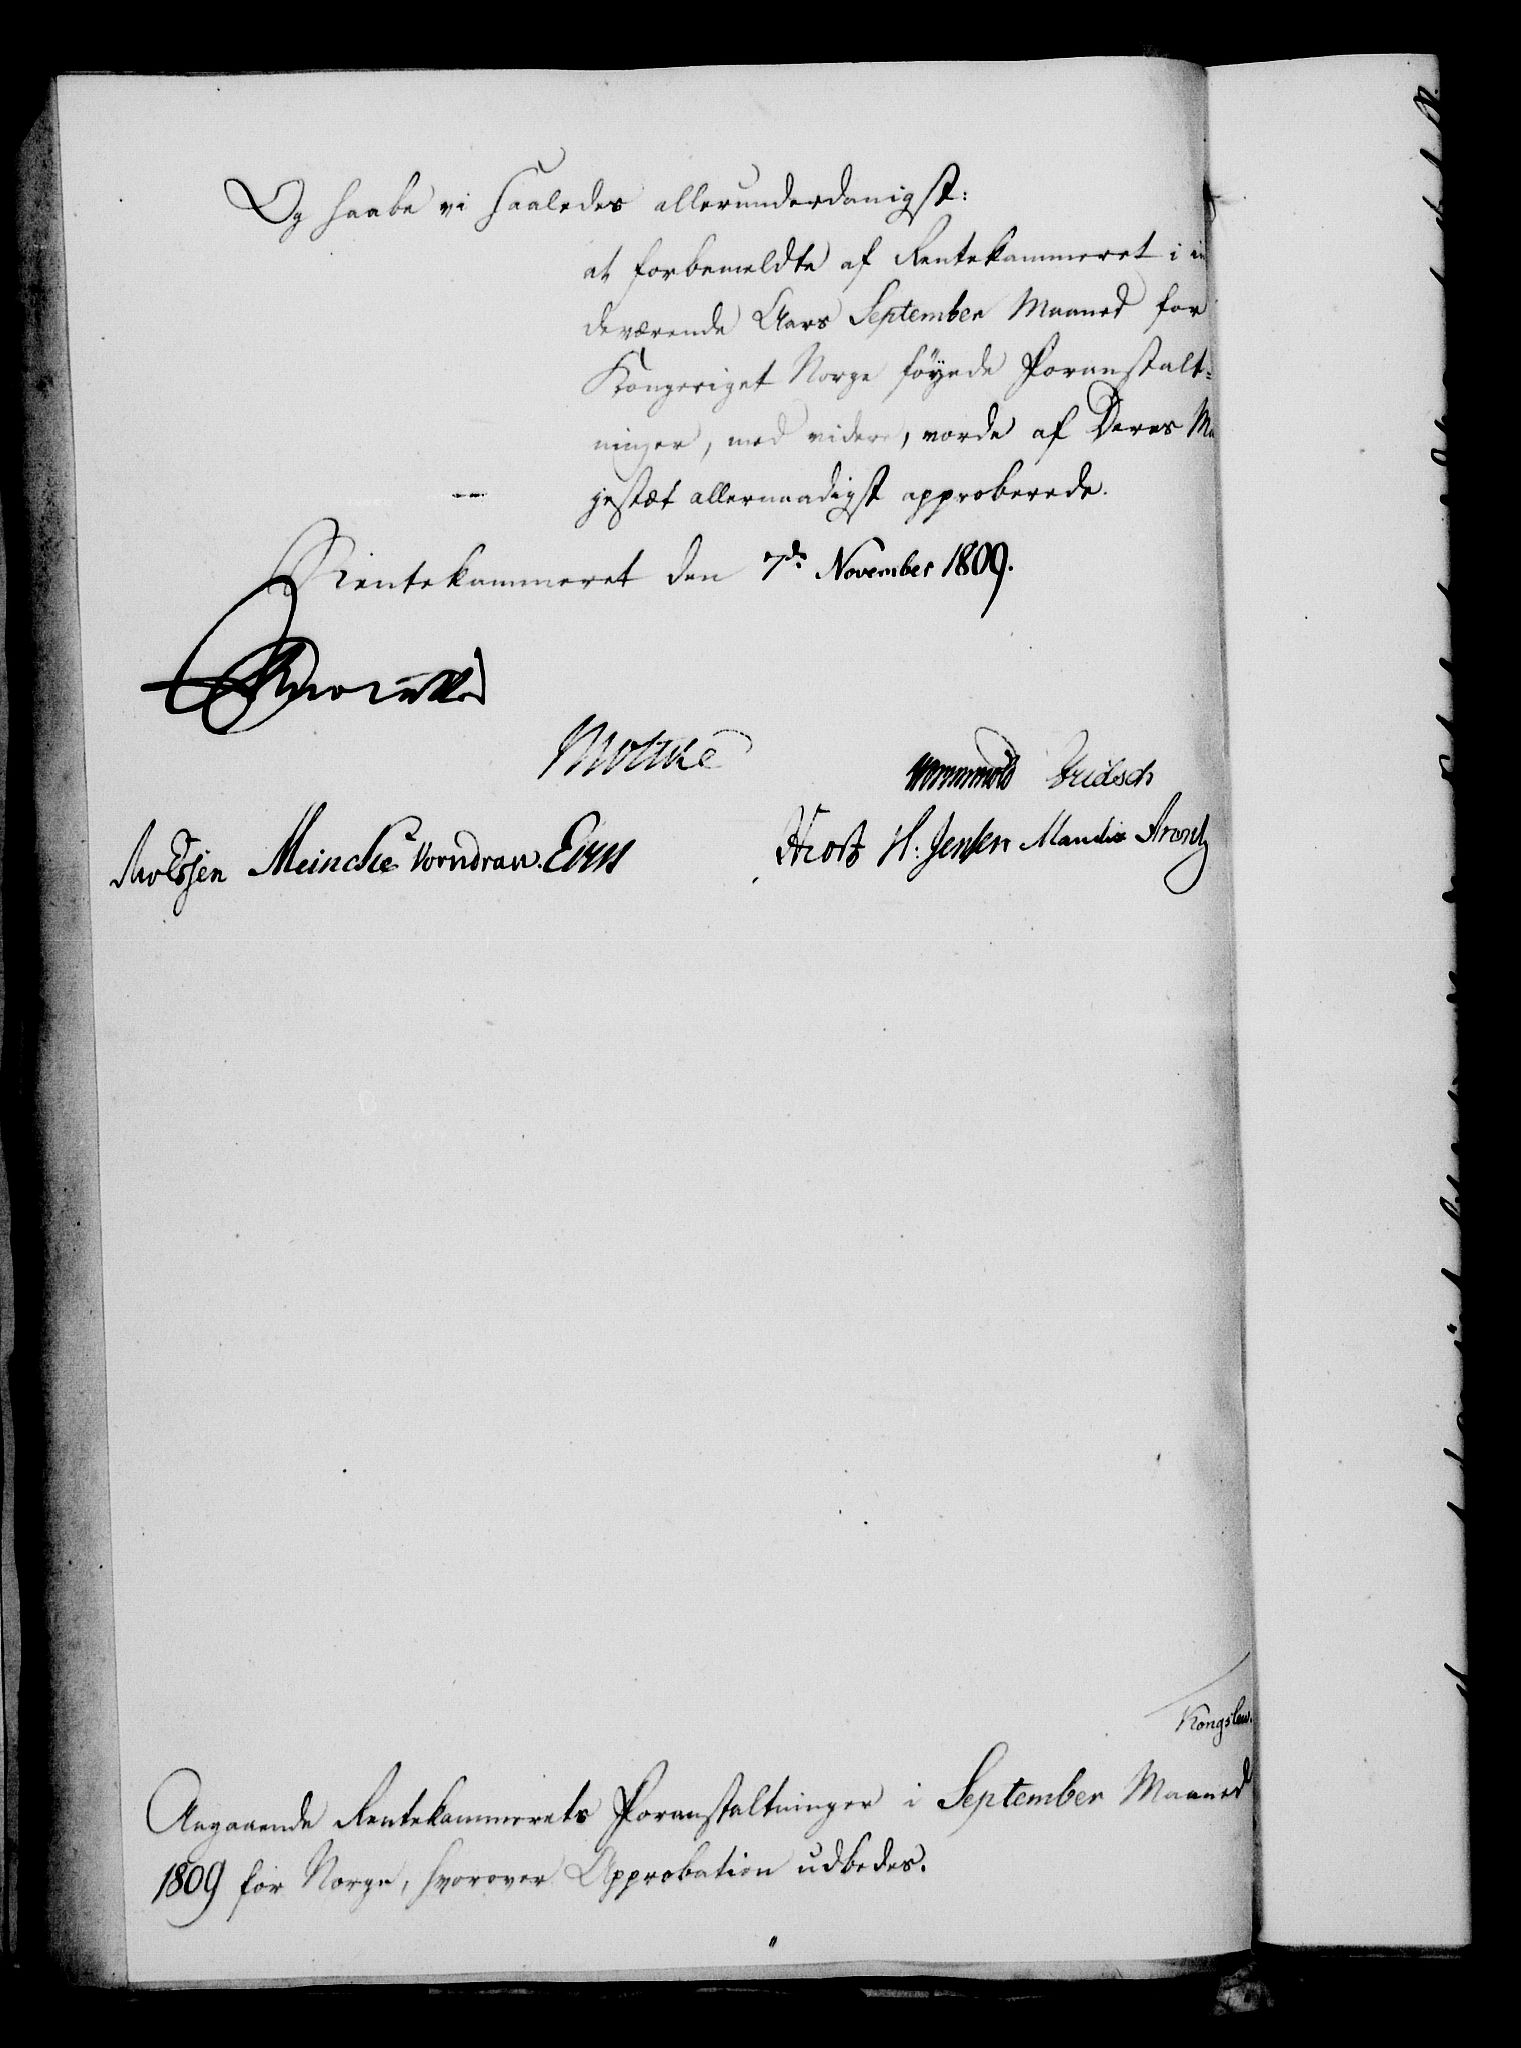 Og haabe vi saaledes allerunderdanigst:
at forbemeldte af Rentekammeret i in
deværende Aars September Maaned for
Kongeriget Norge føyede Foranstalt-
ninger, med videre, vorde af Deres Ma
jestæt allernaadigst approberede.
Rentekammeret den 7de November 1809.
Moltke
Wormskiold Fridsch
Knoblauch
Meincke Vorndran.
H: Jensen Mandix Arentz
Kongslew.
Angaaende Rentekammerets Foranstaltninger i September Maaned
1809 for Norge, hvorover Approbation udbedes.